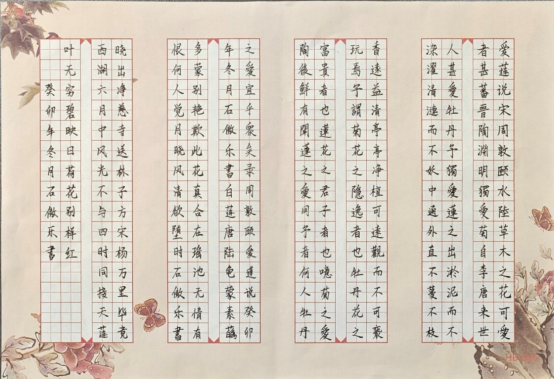 愛蓮说宋周敦颐水陸草木之花可愛
者甚蕃晋陶淵明獨愛菊自李唐来世
人甚愛牡丹予獨愛蓮之出淤泥而不
染濯清漣而不妖中通外直不蔓不枝
香遠益清亭亭净植可遠觀而不可褻
玩焉予謂菊花之隐逸者也牡丹花之
富貴者也蓮花之君子者也噫菊之愛
陶後鮮有聞蓮之愛同予者何人牡丹
之愛宜乎衆矣录周敦颐愛蓮说癸卯
年冬月石傲乐書白莲唐陆龟蒙素蘤
多蒙别艳欺此花真合在瑶池无情有
恨何人觉月晓风清欲堕时石傲乐書
晓出净慈寺送林子方宋杨万里毕竟
西湖六月中风光不与四时同接天莲
叶无穷碧映日荷花别样红
癸卯年冬月石傲乐書